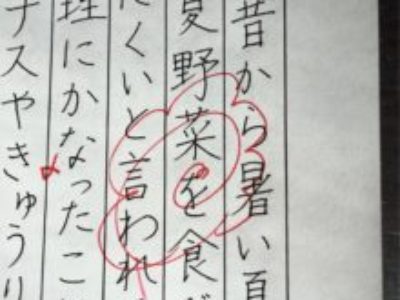 昔から暑い夏
夏野菜を食べ
にくいと言われ
理にかなったこ
ナスやきゅうり